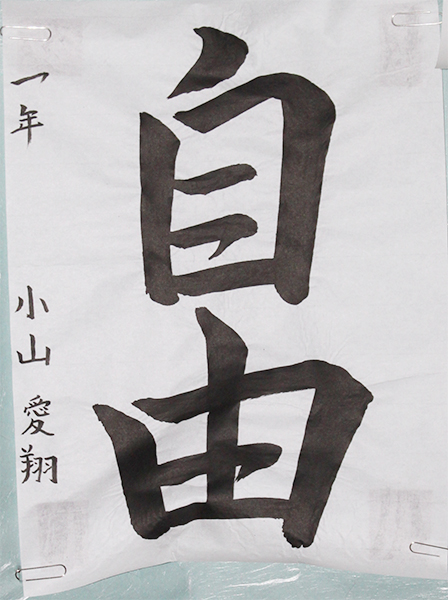 自由
一年 小山愛翔